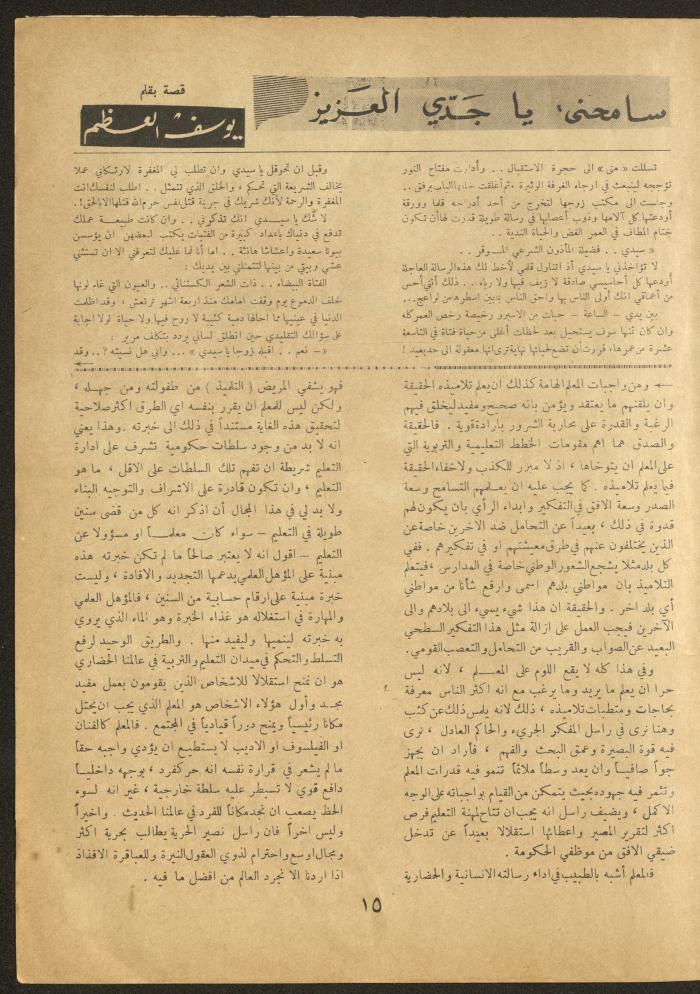 سامحني، يا جدّي العزيز
قصة بقلم
يوسف العظم
تسللت « منى » الى حجرة الاستقبال . . وأدارت مفتاح النور
تؤججه لينبعث في ارجاء الغرفة الوثيرة ، ثم أغلقت خلفها الباب برفق . .
وجاست الى مكتب زوجها لتخرج من أحد أدراجه قلما وورقة
أودعتها كل آلامها وذوب أعصابها في رسالة طويلة قدرت لها أن تكون
ختام المطاف في العمر الغض والحياة الندية . .
« سيدي . . فضيلة المأذون الشرعي الموقر . .
لا تؤاخذني يا سيدي أذ اتناول قلمي لأخط لك هذه الرسالة العاجلة
أودعها كل أحاسيسي صادقة لا زيف فيها ولا رياء . . ذلك أنني أحس
من أعماقي انك أولى الناس بها واحق الناس بما بين اسطرها من لواعج ...
بين يدي – الساعة – حبات من الاسبرو رخيصة رخص العمر كله
وان كان ثمنها سوف يستحيل بعد لحظات أغلى من حياة فتاة في التاسعة
عشرة من عمرها ، قررت أن تضع لحياتها نهاية ترى انها معقولة الى حد بعيد !
وقبل ان تحوقل يا سيدي وان تطلب لي المغفرة لارتكابي عملا
يخالف الشريعة التي تحكم ، والخلق الذي تتمثل . . اطلب لنفسك انت
المغفرة والرحمة لأنك شريك في جريمة قتل نفس حرم الله قتلها الا بالحق ! .
لا شك يا سيدي انك تذكرني . . وان كانت طبيعة عملك
تدفع في دنياك بأعداد كبيرة من الفتيات يكتب لبعضهن ان يؤسسن
بيوتا سعيدة واعشاشا هانئة . . اما أنا فما عليك لتعرفني الا ان تستثني
عشي وبيتي من بينها لتتمثلني بين يديك :
الفتاة البيضاء . . ذات الشعر الكستنائي .. والعيون التي غام لونها
خلف الدموع يوم وقفت امامك منذ اربعة اشهر ترتعش ، وقد اظلمت
الدنيا في عينيها مما احالها دمية كئيبة لا روح فيها ولا حياة لولا اجابة
على سؤالك التقليدي حين انطلق لساني يردد بتكلف مرير :
« – نعم . . اقبله زوجا يا سيدي » ... وابي هل نسيته ؟ .. وقد
ومن واجبات المعلم الهامة كذلك ان يعلم تلاميذه الحقيقة
وان يلقنهم ما يعتقد ويؤمن بانه صحيح ومفيد ليخلق فيهم
الرغبة والقدرة على محاربة الشرور بارادة قوية . فالحقيقة
والصدق هما اهم مقومات الخطط التعليمية والتربوية التي
على المعلم ان يتوخاها ، اذ لا مبرر للكذب ولاخفاء الحقيقة
فيما يعلم تلاميذه . كما يجب عليه ان يعلمهم التسامح وسعة
الصدر وسعة الافق في التفكير وابداء الرأي بان يكون لهم
قدوة في ذلك ، بعيداً عن التحامل ضد الآخرين خاصة عن
الذين يختلفون عنهم في طرق معيشتهم او في تفكيرهم . ففي
كل بلد مثلا يشجع الشعور الوطني خاصة في المدارس ، فيتعلم
التلاميذ بان مواطني بلدهم اسمى وارفع شأنا من مواطني
أي بلد اخر . والحقيقة ان هذا شيء يسيء الى بلادهم والى
الآخرين فيجب العمل على ازالة مثل هذا التفكير السطحي
البعيد عن الصواب والقريب من التحامل والتعصب القومي .
وفي هذا كله لا يقع اللوم على المعلم ، لانه ليس
حرا ان يعلم ما يريد وما يرغب مع انه اكثر الناس معرفة
بحاجات ومتطلبات تلاميذه ، ذلك لانه يلمس ذلك عن كثب
وهنا نرى في راسل المفكر الجريء والحاكم العادل ، نرى
فيه قوة البصيرة وعمق البحث والفهم ، فأراد ان يجهز
جواً صافياً وان يعد وسطاً ملائماً تنمو فيه قدرات المعلم
وتثمر فيه جهوده بحيث يتمكن من القيام بواجباته على الوجه
الاكمل ، ويضيف راسل انه يجب ان تتاح لمهنة التعليم فرص
اكثر لتقرير المصير واعطائها استقلالا بعيداً عن تدخل
ضيقي الافق من موظفي الحكومة .
فالمعلم أشبه بالطبيب في اداء رسالته الانسانية والحضارية
فهو يشفي المريض ( التلميذ ) من طفولته ومن جهله ،
ولكن ليس للمعلم ان يقرر بنفسه اي الطرق اكثر صلاحية
لتحقيق هذه الغاية مستنداً في ذلك الى خبرته . وهذا يعني
انه لا بد من وجود سلطات حكومية تشرف على ادارة
التعليم شريطة ان تفهم تلك السلطات على الاقل ، ما هو
التعليم ، وان تكون قادرة على الاشراف والتوجيه البناء
ولا بد لي في هذا المجال أن اذكر انه كل من قضى سنين
طويلة في التعليم – سواء كان معلما او مسؤولا عن
التعليم – اقول انه لا يعتبر صالحاً ما لم تكن خبرته هذه
مبنية على المؤهل العلمي يدعمها التجديد والافادة ، وليست
خبرة مبنية على ارقام حسابية من السنين ، فالمؤهل العلمي
والمهارة في استغلاله هو غذاء الخبرة وهو الماء الذي يروي
به خبرته لينميها وليفيد منها . والطريق الوحيد لرفع
التسلط والتحكم في ميدان التعليم والتربية في عالمنا الحضاري
هو ان نمنح استقلالا للاشخاص الذين يقومون بعمل مفيد
مجد وأول هؤلاء الاشخاص هو المعلم الذي يجب ان يحتل
مكانا رئيسياً ويمنح دوراً قيادياً في المجتمع . فالمعلم كالفنان
او الفيلسوف او الاديب لا يستطيع ان يؤدي واجبه حقاً
ما لم يشعر في قرارة نفسه انه حر كفرد ، يوجهه داخلياً
دافع قوي لا تسيطر عليه سلطة خارجية ، غير انه لسوء
الحظ يصعب ان نجد مكاناً للفرد في عالمنا الحديث . واخيراً
وليس اخراً فان راسل نصير الحرية يطالب بحرية اكثر
ومجال اوسع واحترام لذوي العقول النيرة وللعباقرة الافذاذ
اذا اردنا الا نجرد العالم من افضل ما فيه .
١٥